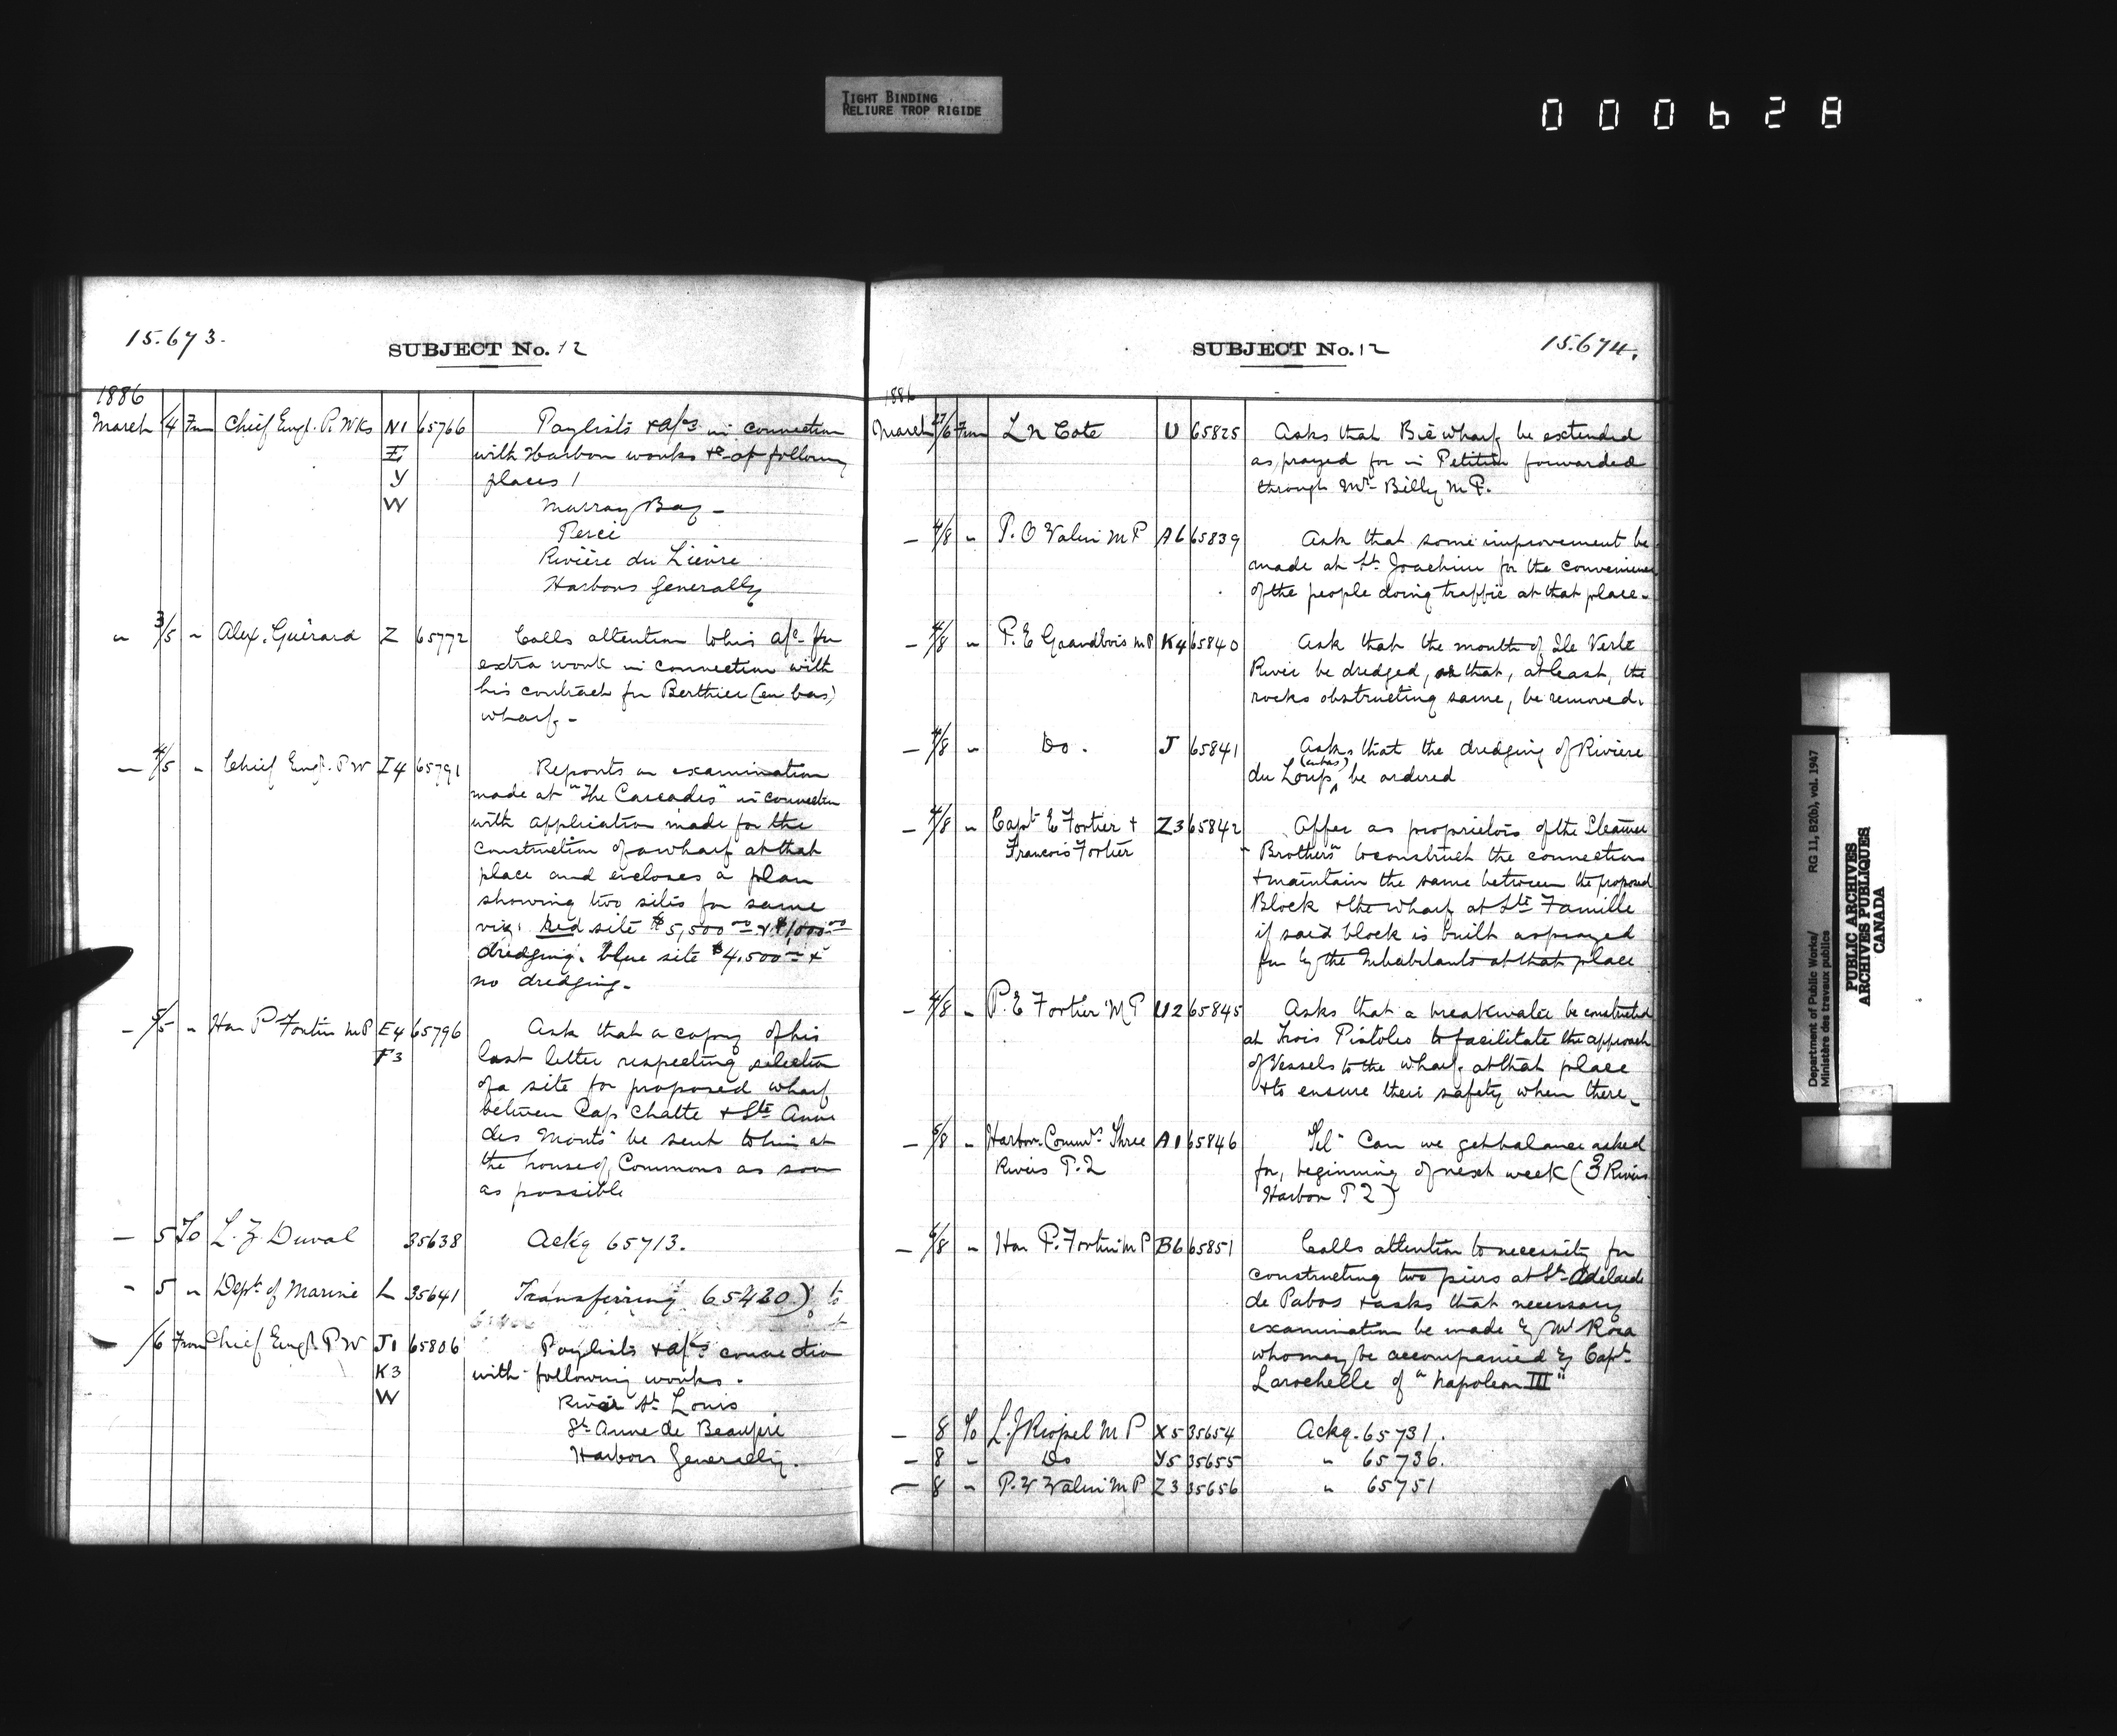 TIGHT BINDING
RELIURE TROP RIGIDE
000628
15.673.
SUBJECT No. 12
1886
March /4 From Chief Engr. P. Wks N1 65766 Paylists & a/cs in connection
I with Harbor works &c at following
Y places /
W Murray Bay -
Percé
Rivière du Lièvre
Harbors Generally
" 3/5 " Alex. Guérard Z 65772 Calls attention to his a/c for
extra work in connection with
his contract for Berthier (en bas)
wharf. -
— 4/5 " Chief Engr. P W I4 65791 Reports on examination
made at "The Cascades" in connection
with application made for the
construction of a wharf at that
place and encloses a plan
showing two sites for same
viz: red site $5,500.00 & $1,000.00
dredging. blue site $4.500.00 &
no dredging -
— 5/5 " Hon P Fortin M P E4 65796 Ask that a copy of his
F3 last letter respecting selection
of a site for proposed wharf
between Cap Chatte & Ste Anne
des Monts be sent to him at
the house of Commons as soon
as possible
— 5 To L. Z. Duval 35638 Ackg 65713.
- 5 " Dept. of Marine L 35641 Transferring 65420) to
/6 From Chief Engr. P W J1 65806 Paylists & a/cs connection
K3 with following works.
W River St. Louis
St. Anne de Beaupré
Harbors Generally.
SUBJECT No. 12
15.674.
1886
March 27/6 From L N Coté U 65825 Asks that Bic wharf be extended
as prayed for in Petition forwarded
through Mr. Billy M P.
— 4/8 " P. V Valin M P A6 65839 Ask that some improvement be
made at St. Joachim for the convenience
of the people doing traffic at that place -
— 4/8 " P. E Grandbois M P K4 65840 Ask that the mouth of Ile Verte
River be dredged, or that, at least, the
rocks obstructing same, be removed.
— 4/8 " Do. J 65841 Asks that the dredging of Rivière
(en bas)
du Loup, be ordered
— 4/8 " Capt E Fortier & Z3 65842 Offer as proprietors of the Steamer
Francois Fortier "Brothers" to construct the connection
& maintain the same between the proposed
Block & the wharf at Ste Famille
if said block is built as prayed
for by the Inhabitants at that place
— 4/8 " P. E Fortier M P U2 65845 Asks that a breakwater be constructed
at Trois Pistoles to facilitate the approach
of Vessels to the wharf at that place
& to ensure their safety when there -
— 5/8 " Harbor Commrs. Three A1 65846 Tel- Can we get balance asked
Rivers P. 2 for, beginning of next week (3 Rivers
Harbon P 2)
— 6/8 " Hon P. Fortin M P B6 65851 Calls attention to necessity for
constructing two piers at St- Adelaide
de Pabos & asks that necessary
examination be made by Mr Rosa
who may be accompanied by Capt.
Larochelle of "Napoleon III"
— 8 To L. J Riopel M P X5 35654 Ackg. 65731.
— 8 " Do Y5 35655 " 65736.
— 8 " P. V Valin M P Z3 35656 " 65751
Department of Public Works/ RG 11, B2(b), vol. 1947
Ministère des travaux publics
PUBLIC ARCHIVES
ARCHIVES PUBLIQUES
CANADA